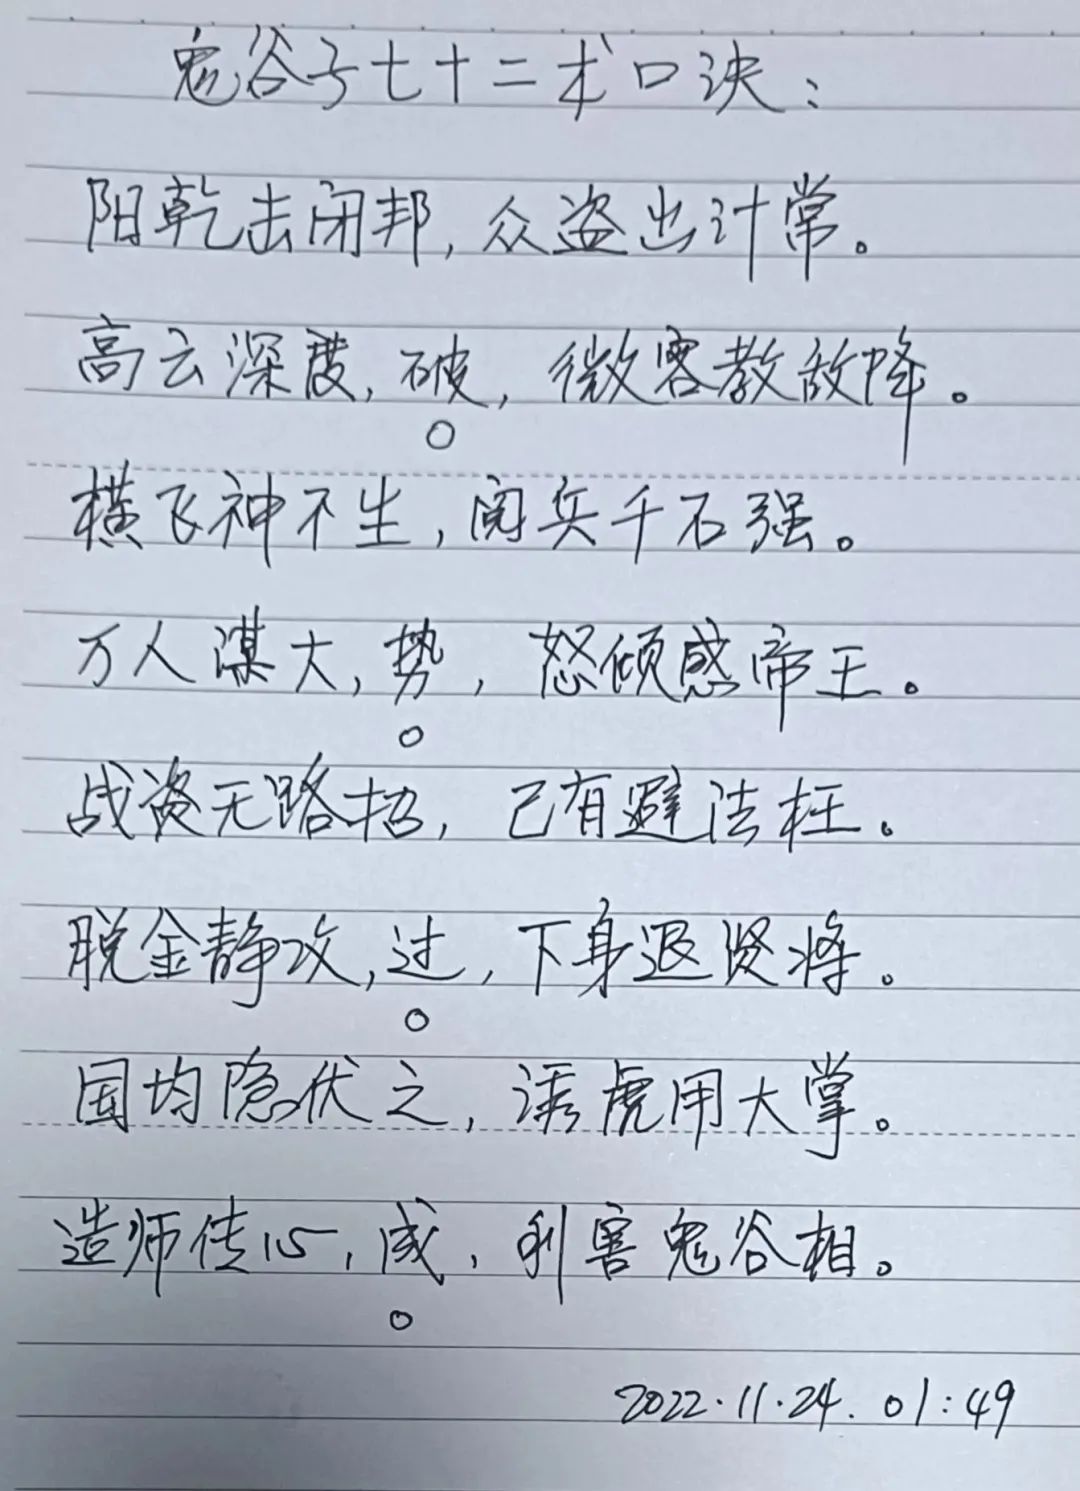 鬼谷子七十二术口诀：
阳乾击闭邦，众盗出计常。
高云深度，破，微客教敌降。
横飞神不生，阅兵千石强。
万人谋大，势，怒倾惑帝王。
战资无路招，己有避法枉。
脱金静攻，过，下身退贤将。
国均隐伏之，诱虎用大掌。
造师传心，威，利害鬼谷相。
2022.11.24. 01:49